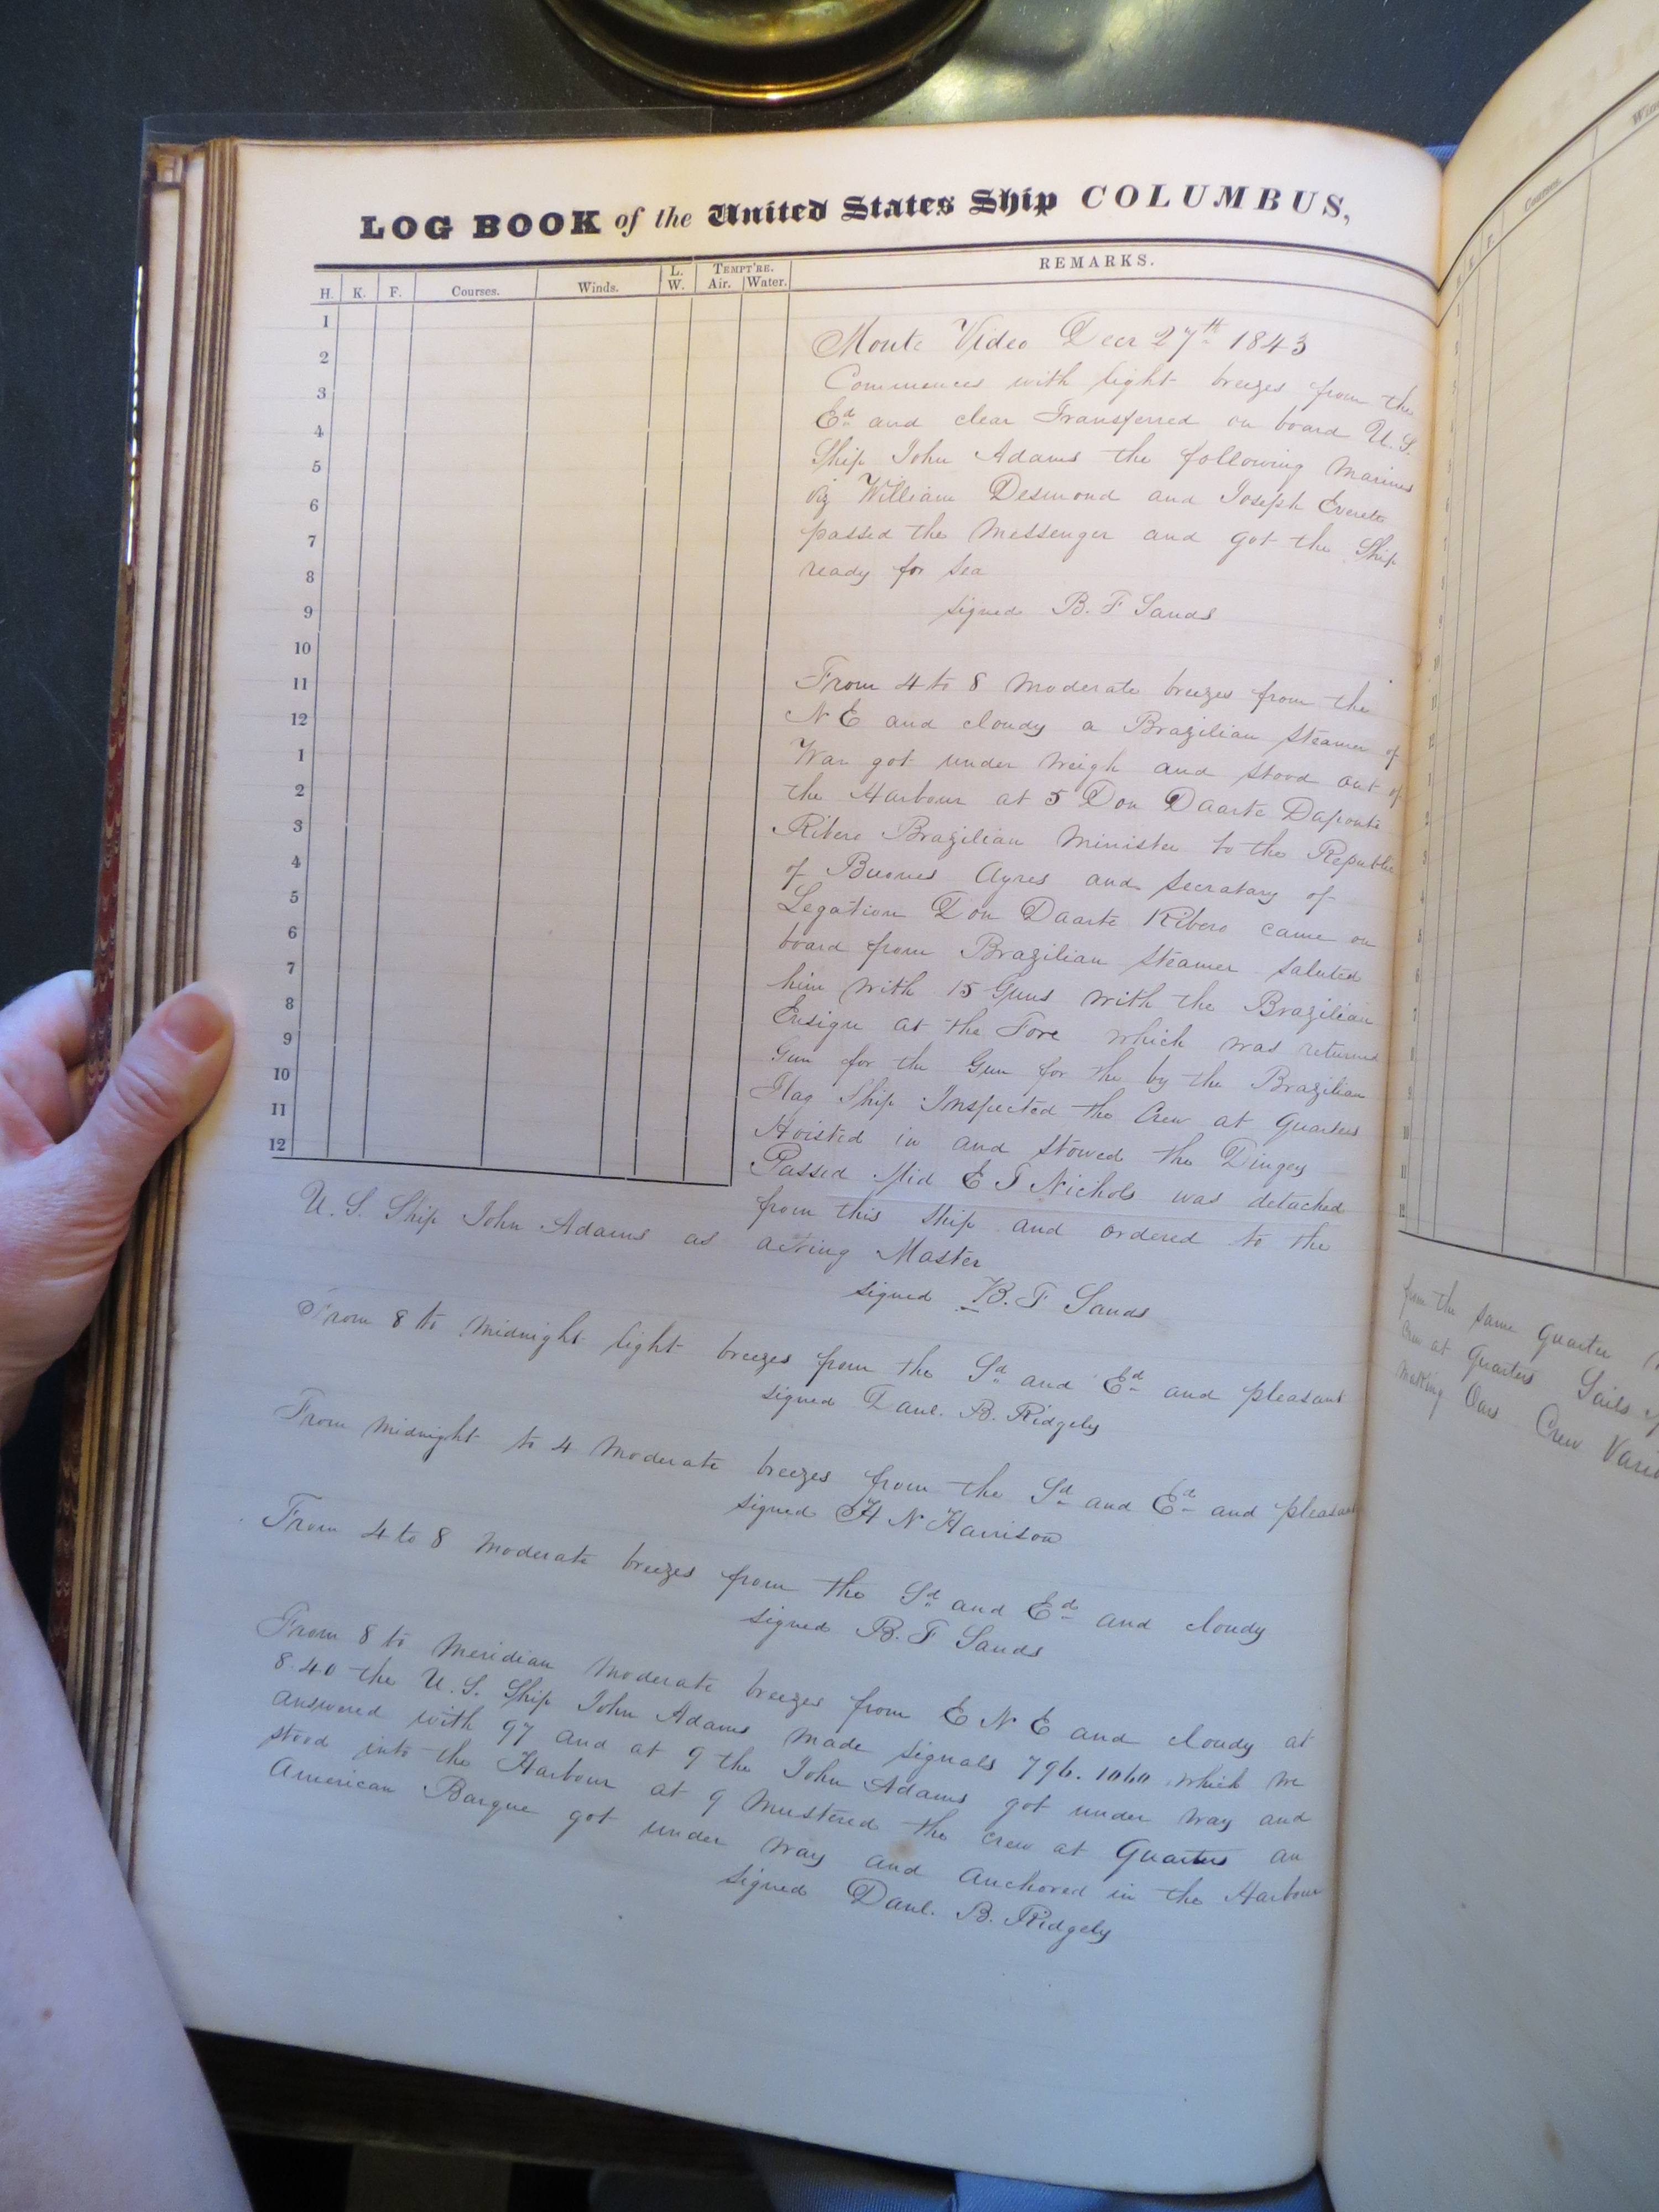 LOG BOOK of the United States Ship COLUMBUS,
H. K. F. Courses. Winds. L. W. TEMPT'RE. Air. Water. REMARKS.
1
2
3
4
5
6
7
8
9
10
11
12
1
2
3
4
5
6
7
8
9
10
11
12
Monte Video Decr 27th 1843
Commences with light breezes from the
Ed and clear Transferred on board U.S.
Ship John Adams the following Marines
viz William Desmond and Joseph Everete
passed the Messenger and got the Ship
ready for sea
signed B. F Sands
From 4 to 8 moderate breezes from the
N E and cloudy a Brazilian Steamer of
War got under weigh and stood out of
the Harbour at 5 Don Daarte Daponte
Ribero Brazilian Minister to the Republic
of Buenes Ayres and Secratary of
Legation Don Daarte Ribero came on
board from Brazilian Steamer saluted
him with 15 Guns with the Brazilian
Ensign at the Fore which was returned
Gun for the Gun for the by the Brazilian
Flag Ship Inspected the Crew at Quarters
Hoisted in and stowed the Dingey
Passed Mid E T Nichols was detached
from this ship and ordered to the
U.S. Ship John Adams as acting Master
signed B. F Sands
From 8 to midnight light breezes from the Sd and Ed and pleasant
signed Danl. B. Ridgely
From midnight to 4 moderate breezes from the Sd and Ed and pleasant
signed H N Harrison
From 4 to 8 moderate breezes from the Sd and Ed and cloudy
signed B. F Sands
From 8 to Meridian moderate breezes from E N E and cloudy at
8.40 the U.S. Ship John Adams made signals 796. 1060 which we
answered with 97 and at 9 the John Adams got under way and
stood into the Harbour at 9 mustered the crew at Quarters an
American Barque got under way and anchored in the Harbour
signed Danl. B. Ridgely
Courses.
from the same quarter
Crew at Quarters Sails
making Oars Crew